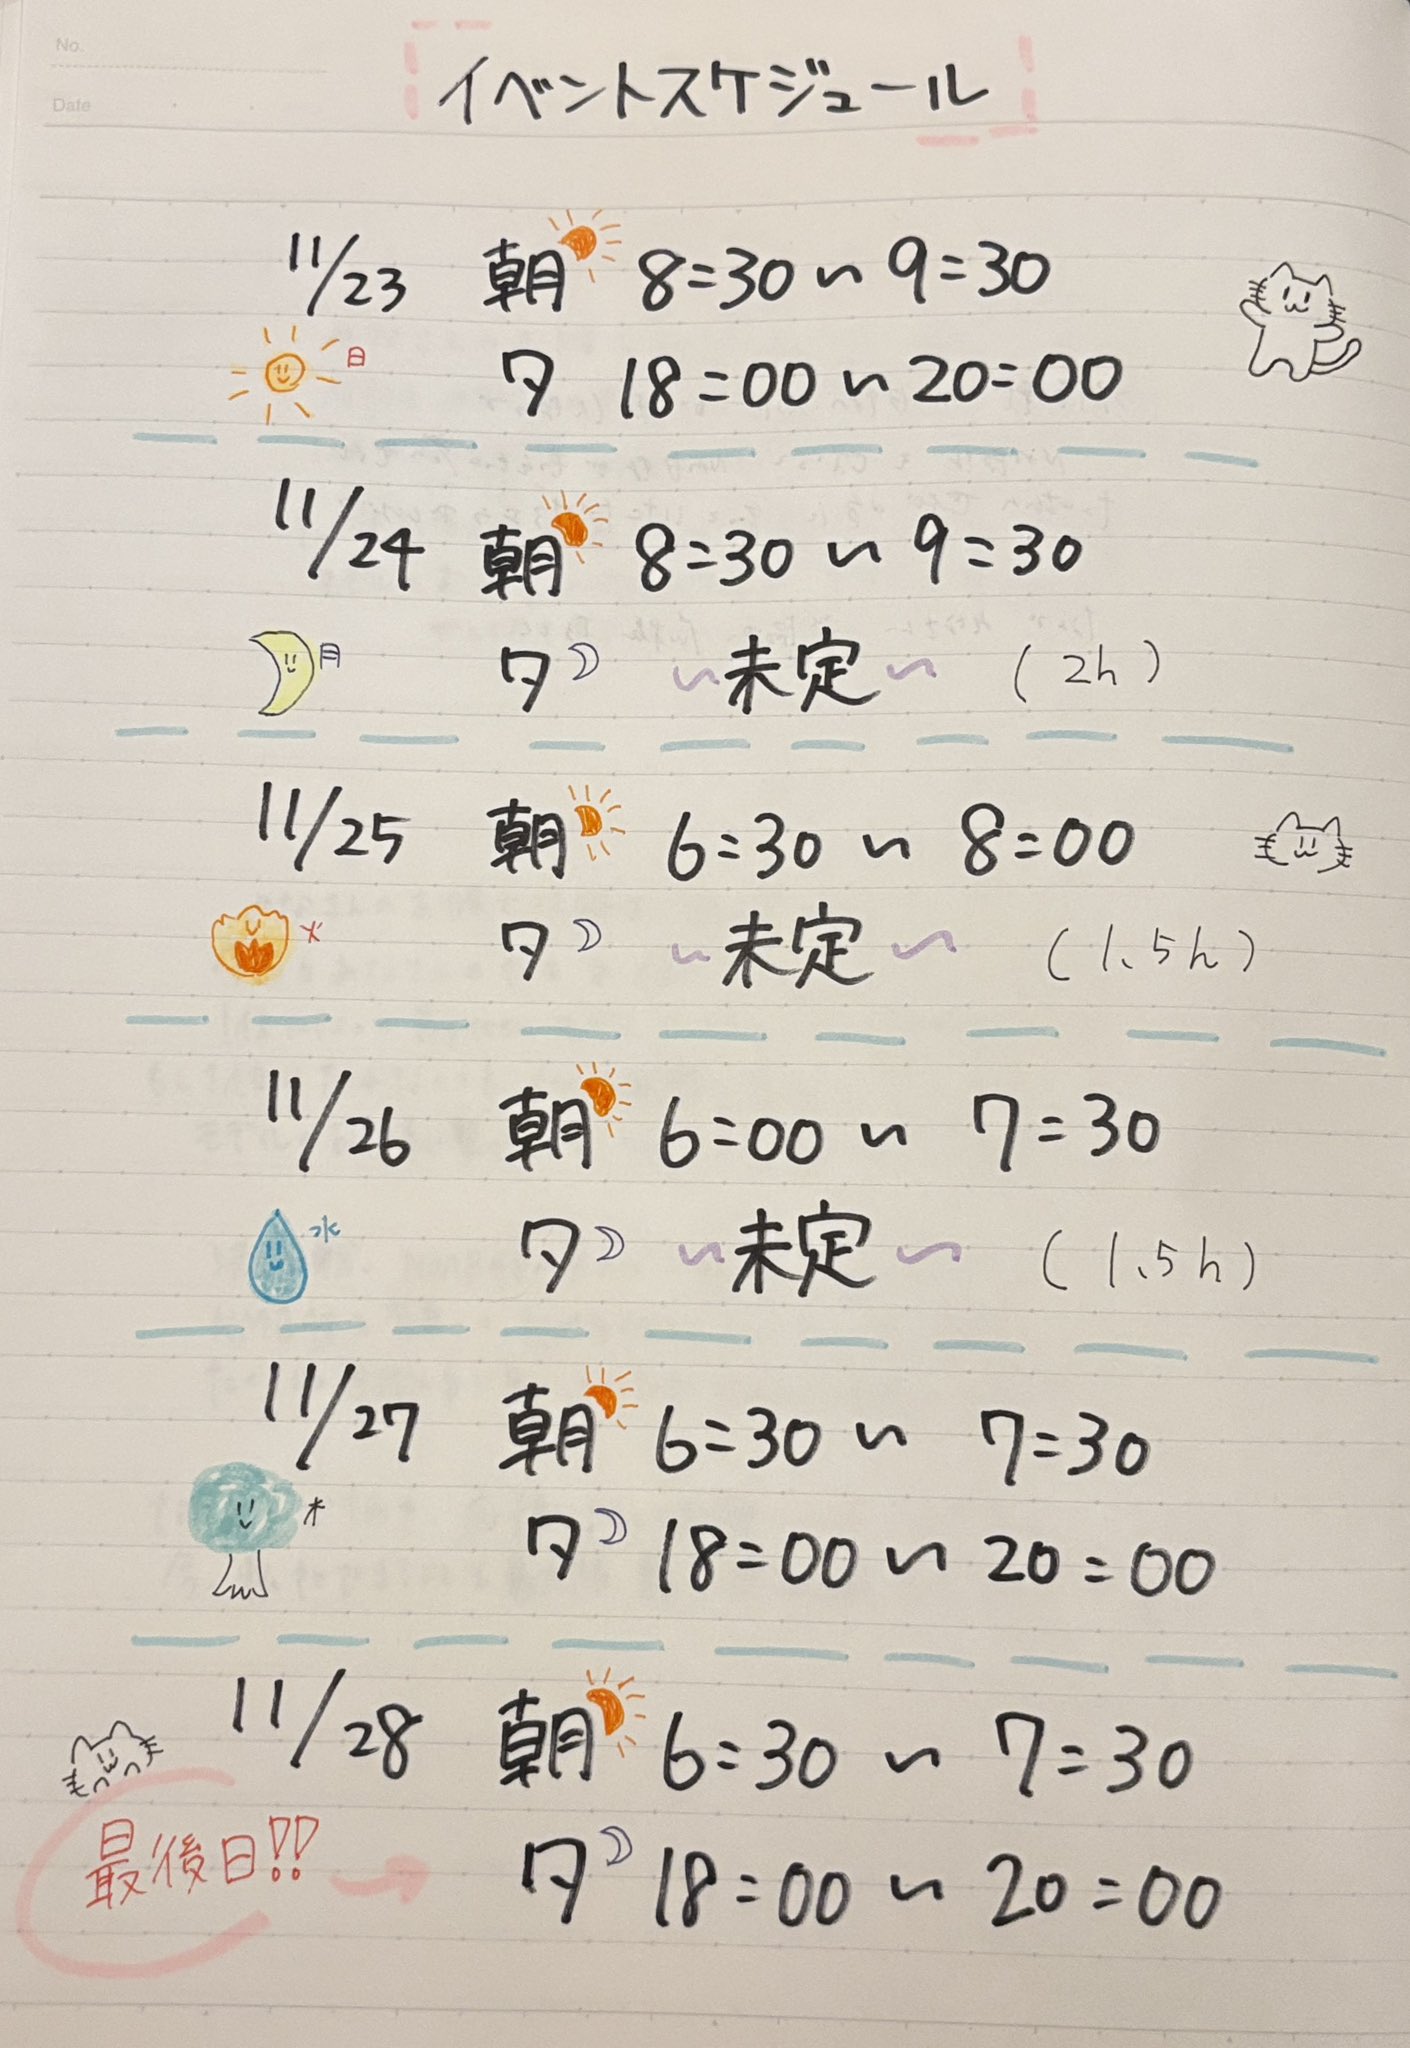 No.
Date
イベントスケジュール
11/23 朝 8:30~9:30
日 夕 18:00~20:00
11/24 朝 8:30~9:30
月 夕 ~未定~ (2h)
11/25 朝 6:30~8:00
火 夕 ~未定~ (1.5h)
11/26 朝 6:00~7:30
水 夕 ~未定~ (1.5h)
11/27 朝 6:30~7:30
木 夕 18:00~20:00
11/28 朝 6:30~7:30
最後日!! → 夕 18:00~20:00